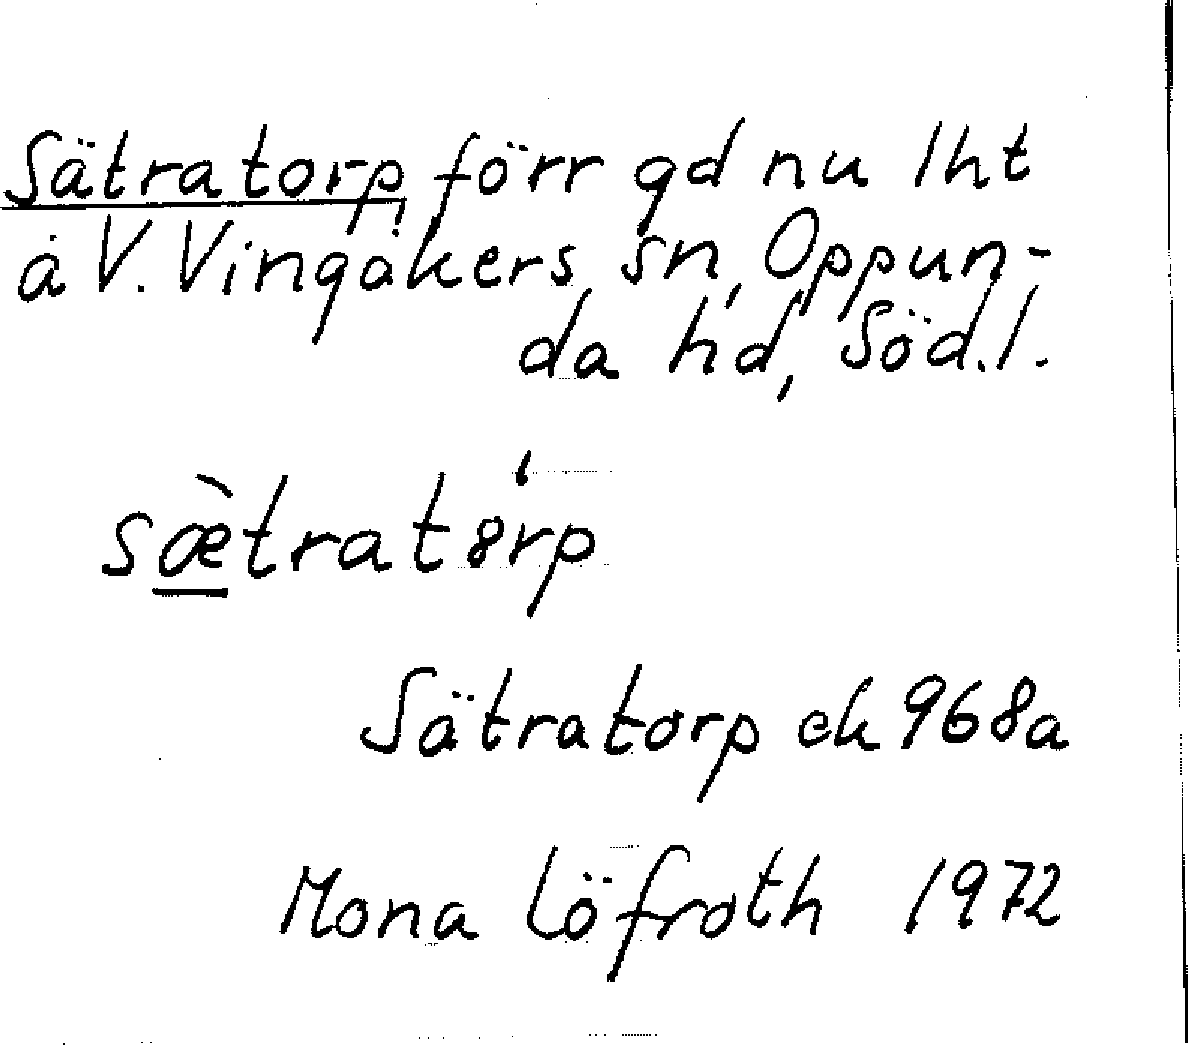 Sätratorp, förr gd nu lht
å V. Vingåkers sn, Oppun-
da hd, Söd.l.
sæ̀tratȯrp
Sätratorp ek 968a
Mona Löfroth 1972